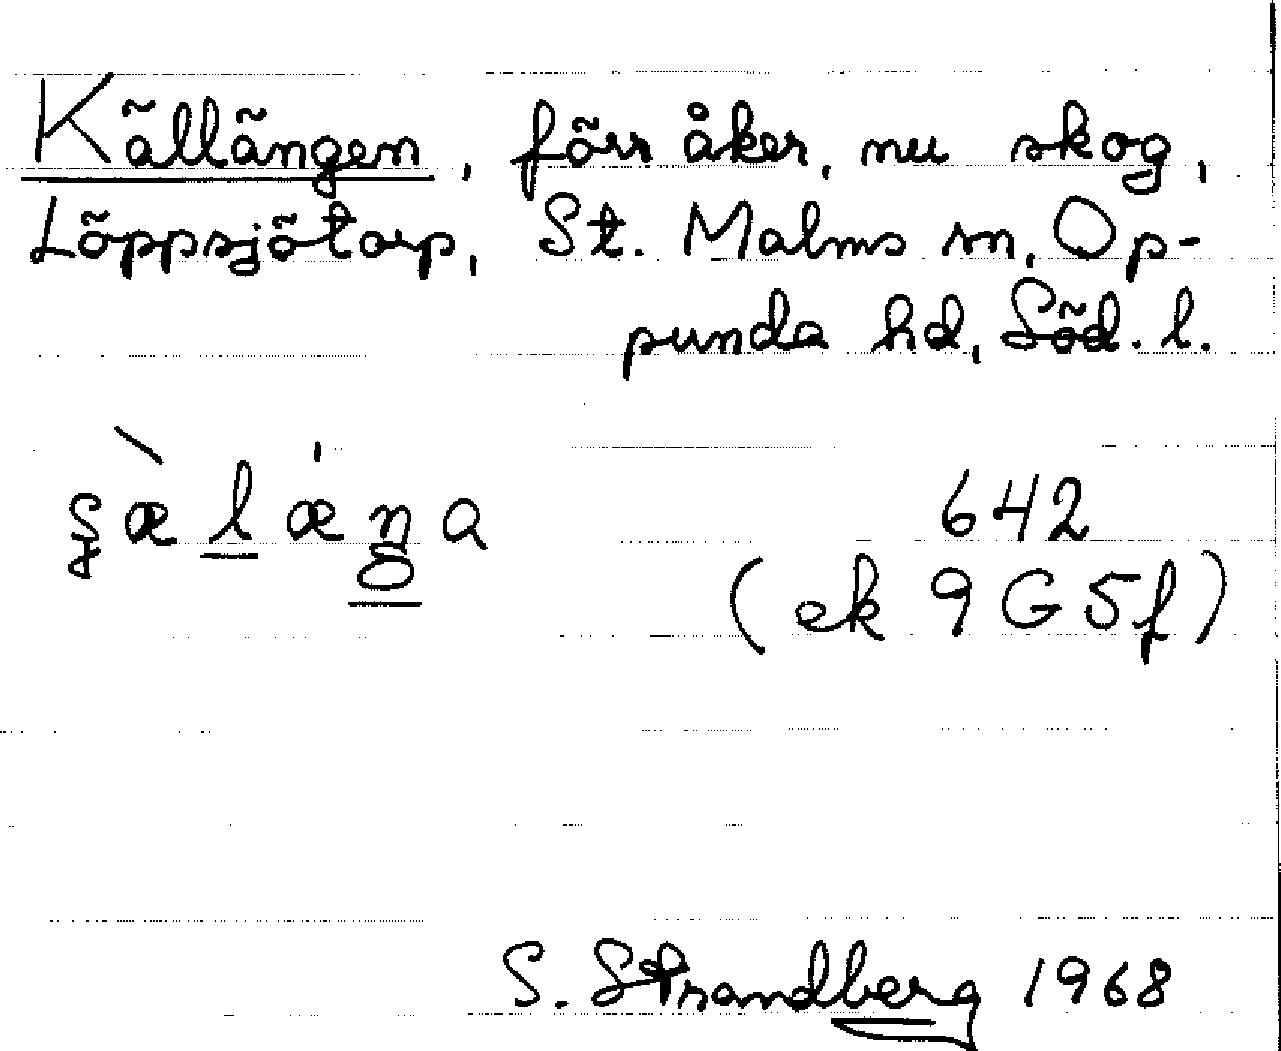 Källängen, förr åker, nu skog,
Löppsjötorp, St. Malms sn, Op-
punda hd, Söd. l.
642
(ek 9G5f)
S. Strandberg 1968